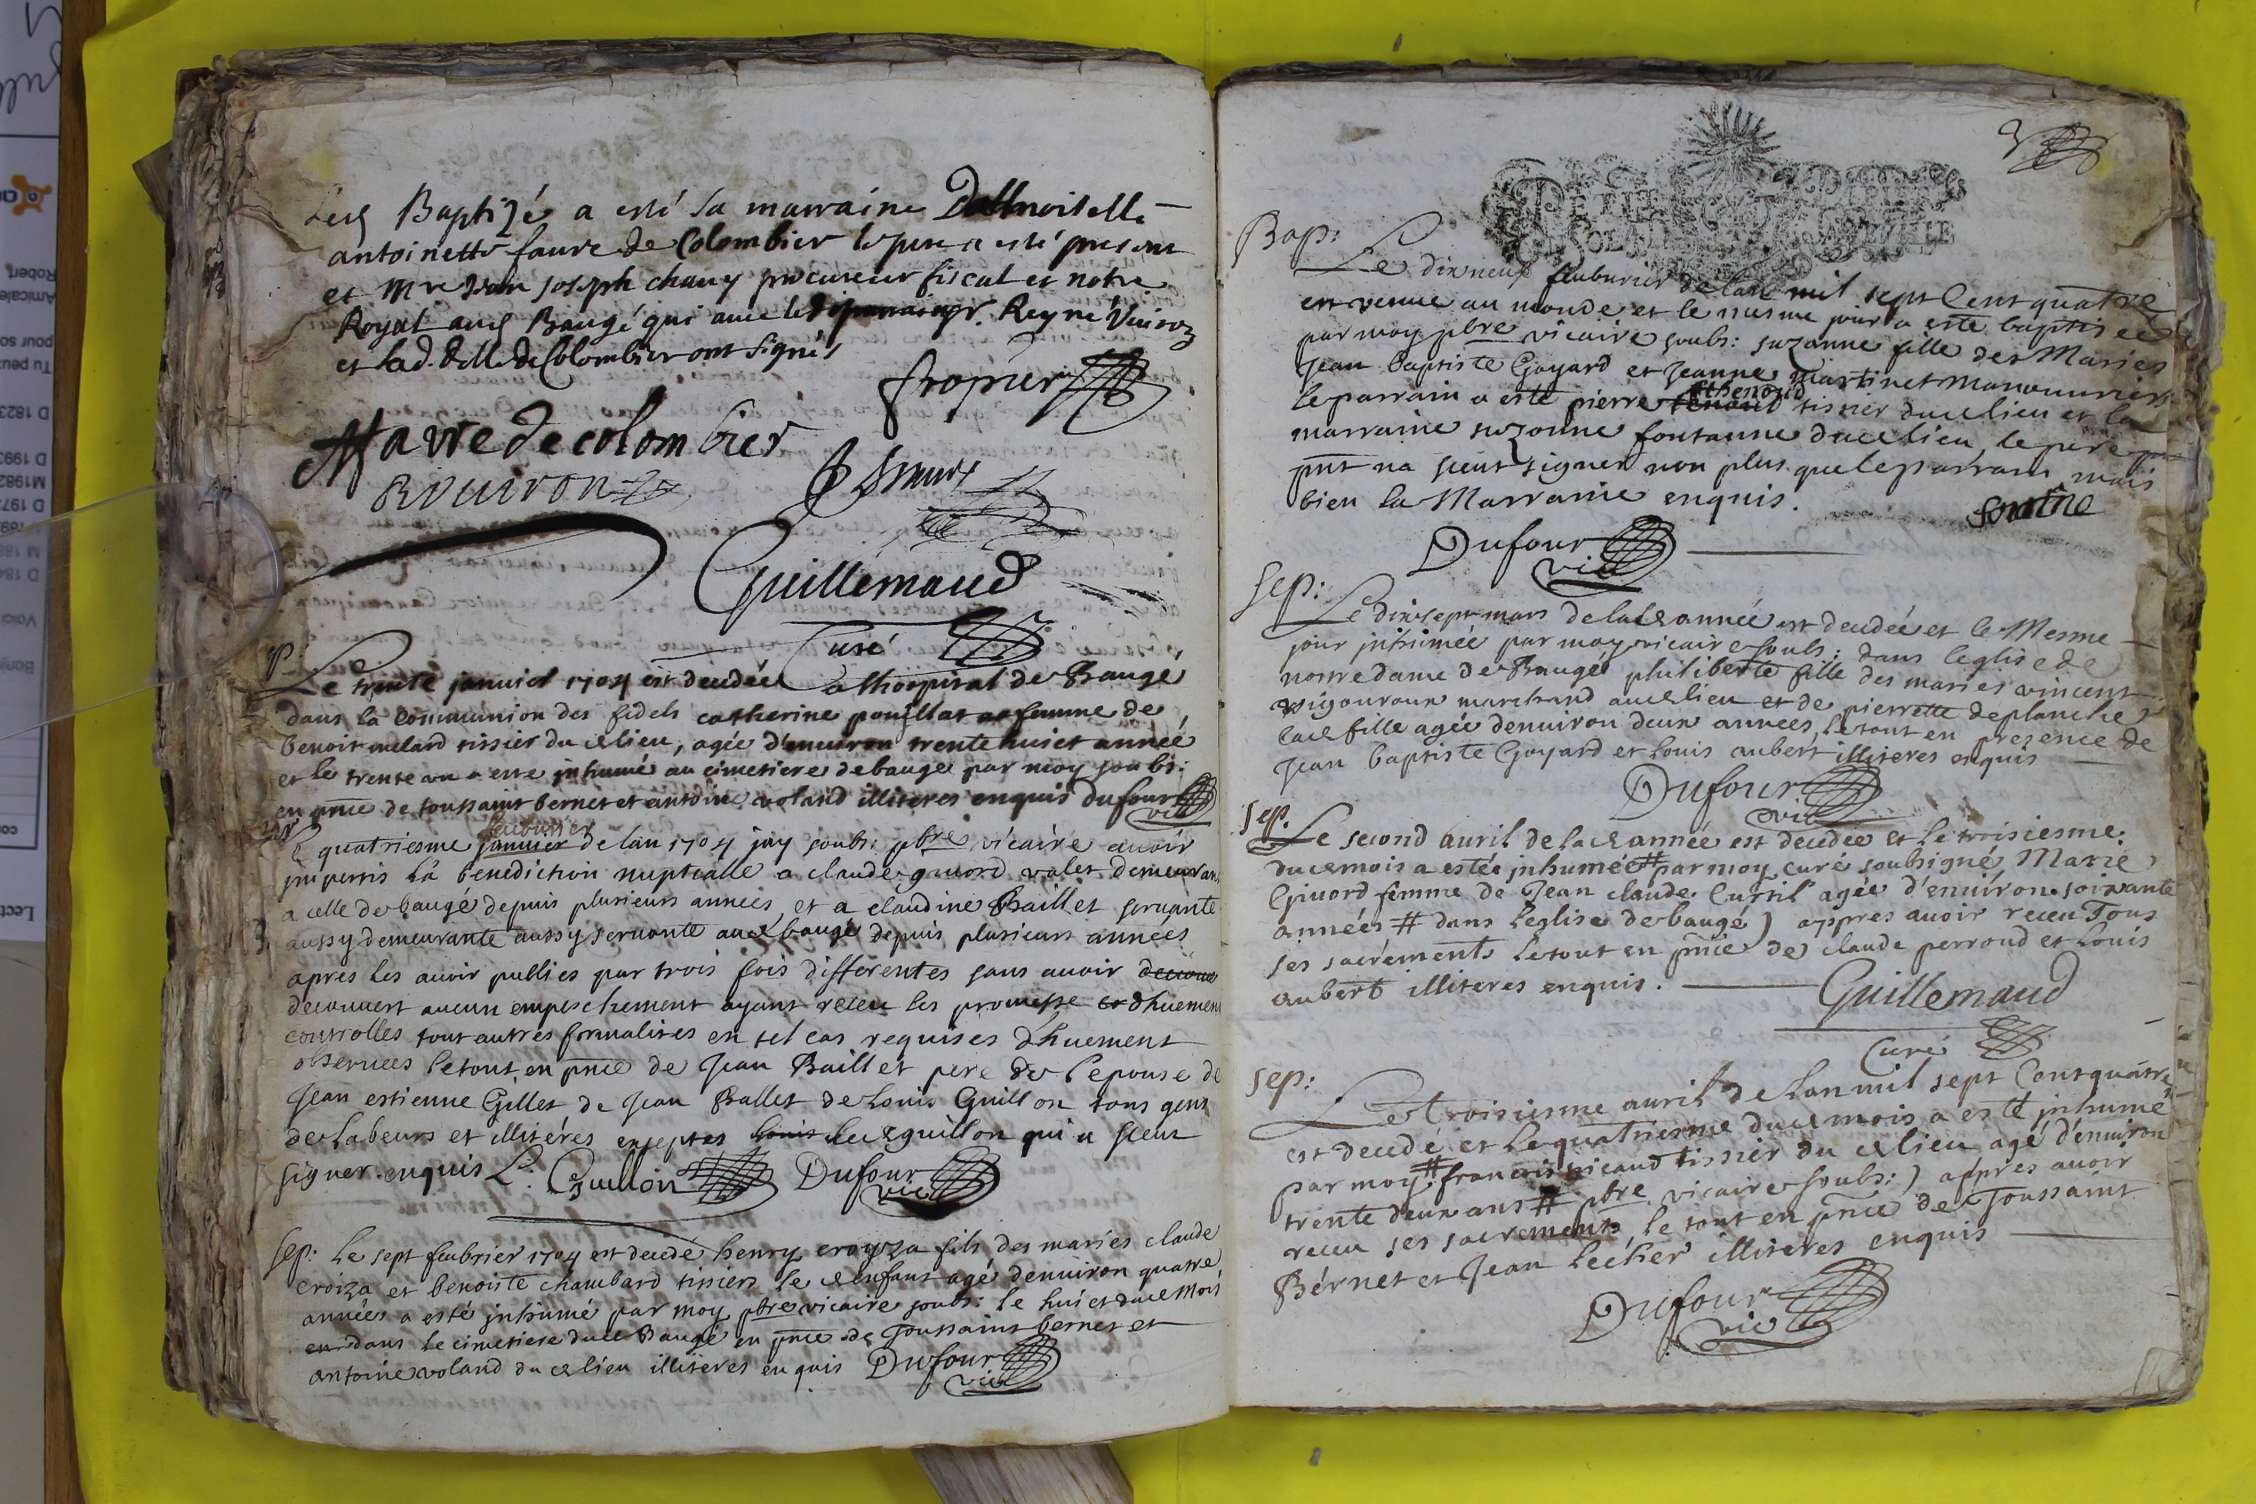 Baptizé a esté sa marraine Dalmoiselle
antoinette faure de Colombier le pere a esté present
et Mre Jean Joseph chany procureur fiscal et notre
Royal aud Baugé qui avec le Reyné Vuiron
et lad. delle de Colombier ont signés
Fropier
AFavre de colombier
RVuiron
Guillemaud
Curé
Le trente janvier 1704 est decedée a lhospital de Baugé
dans la Communion des fidels catherine pouillat femme de
benoit melard tissier du ce lieu, agée d'environ trente huict année
et le trente un a este inhumé au cimetiere de bauge par moy soubs:
en pnce de toussaint bernet et antoine voland illiteres enquis Dufour
vic
feubrier
Le quatriesme janvier de lan 1704 jay soubs: pbre vicaire avoir
impertis la benediction nuptialle a claude givord valet demeurant
a celle de baugé depuis plusieurs années, et a claudine Baillet servante
aussy demeurante aussy servante aud baugé depuis plusieurs années
apres les avoir publies par trois fois differentes sans avoir
decouvert aucun empeschement ayant receu les promesse et dhuement
controlles tout autres formalites en tel cas requises dhuement
observees le tout en pnce de Jean Baillet pere de lepouse de
Jean estienne Gillet de Jean Ballet de Louis Guillon tous gens
de labeurs et illitéres exseptes Louis led guillon qui a sceut
signer enquis L. Guillon Dufour
vic
Sep: Le sept feubrier 1704 est decedé henry croyza fils des maries claude
croiza et benoite chambard tissiers le d enfant agé denviron quatre
années a esté inhumé par moy pbre vicaire soubs: le huict du ce mois
en dans le cimetiere du ce Baugé en pnce de Toussaint bernet et
antoine voland du ce lieu illiteres enquis Dufour
vic
3
Bap:
Le dix neuf feuburier de lan mil sept Cent quatre
est venue au monde et le mesme jour a este baptisée
par moy pbre vicaire soubs: suzanne fille des Maries
Jean baptiste Goyard et Jeanne Martinet manouvriers
thenoud
le parrain a esté pierre tissier du ce lieu et la
marraine suzanne fontanne du ce lieu le pere
pnt na sceut signer non plus que le parrain mais
bien la Marraine enquis.
Dufour
vic
Sep:
Le dix sept mars de lad année est decedée et le Mesme
jour inhumée par moy vicaire soubs: dans leglise de
nostre dame de Bauge philiberte fille des maries vincent
vigouroux marchand au ce lieu et de pierrette deplanche
lad fille agée denviron deux années, le tout en presence de
Jean baptiste Goyard et Louis aubert illiteres enquis
Dufour
vic
Sep.
Le second avril de lad année est decedée et le troisiesme
du ce mois a estée inhumée # par moy curé soubsigné, Marie
Givord femme de Jean claude Curtil agée d'environ soixante
années # dans leglise de baugé) appres avoir receu Tous
ses sacréments le tout en pnce de claude perroud et Louis
aubert illiteres enquis.
Guillemaud
Curé
Sep:
Le Troisiesme avril de Lan mil sept Cent quatre
est decedé et le quatriesme du ce mois a esté inhumé
par moy # francois vicaud tissier du ce lieu agé d'environ
trente deux ans # pbre vicaire soubs:) appres avoir
receu ses sacrements, le tout en pnce de Toussaint
Bérnet et Jean Lecher illiteres enquis
Dufour
vic